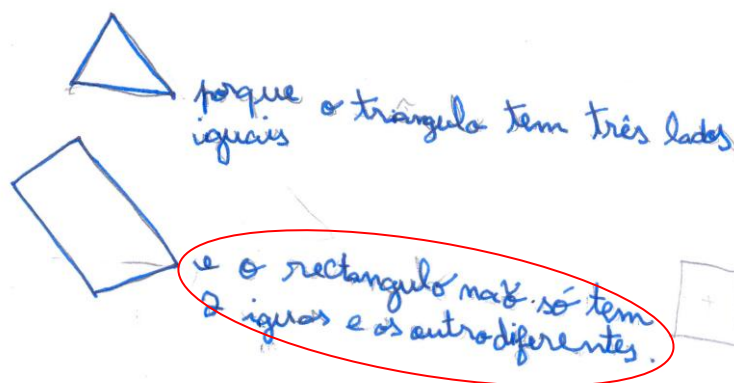 porque o triângulo tem três lados
iguais
e o rectangulo não só tem
2 iguas e os outro diferentes.